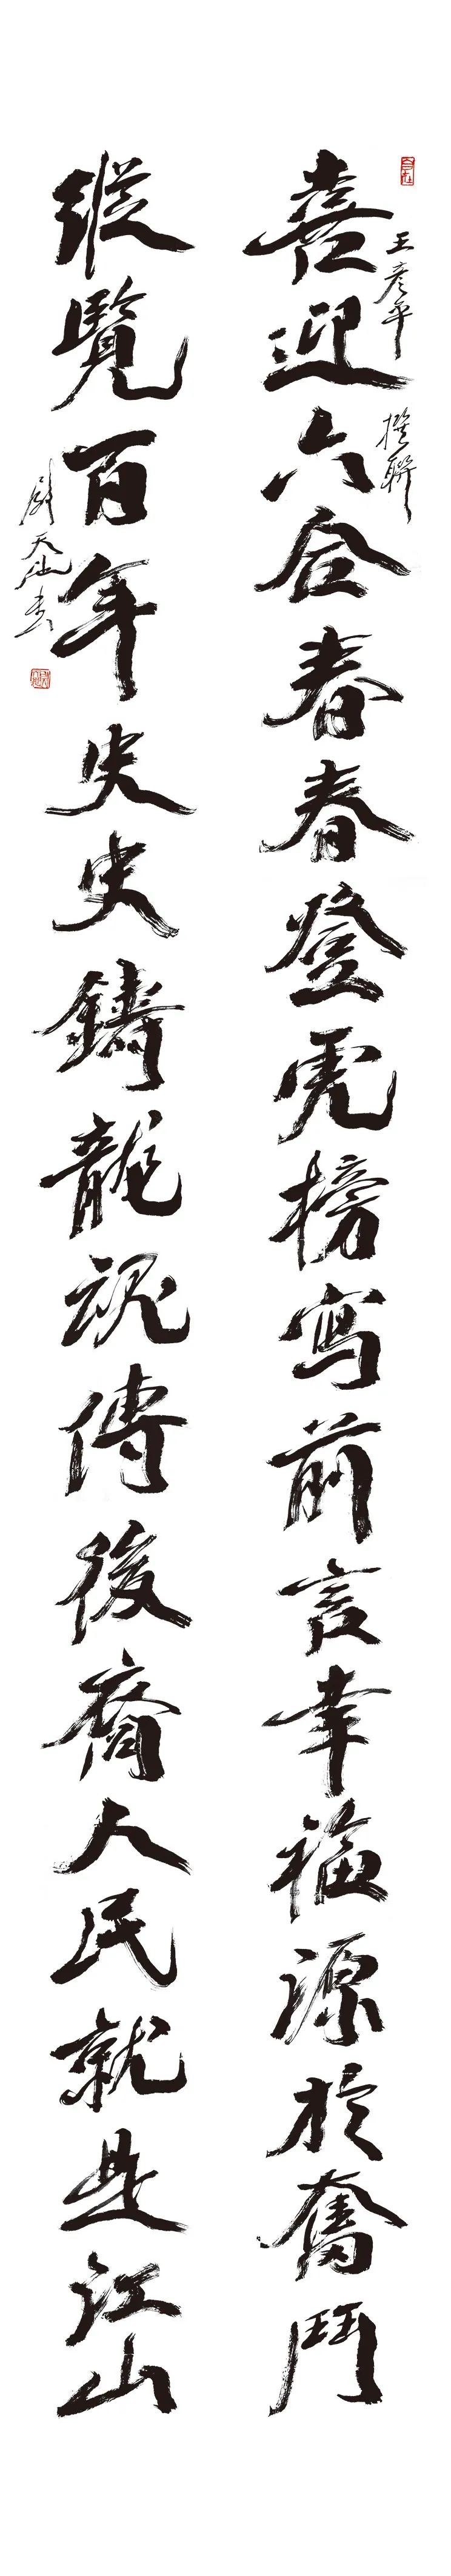 喜迎六合春春登虎榜寫前言幸福源於奮鬥
王彦平撰聯
縱覽百年史史鑄龍魂傳後裔人民就是江山